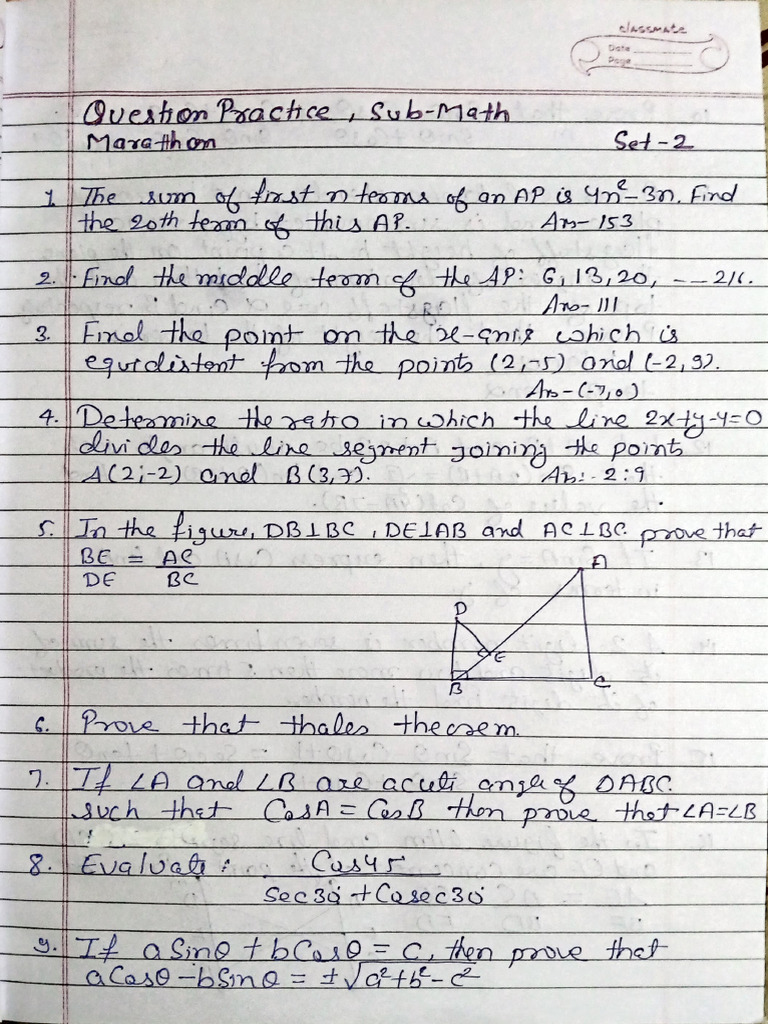 classmate
Date
Page
Question Practice, Sub-Math
Marathon Set-2
1. The sum of first n terms of an AP is 4n²-3n. Find
the 20th term of this AP. Ans- 153
2. Find the middle term of the AP: 6, 13, 20, --- 216.
Ans- 111
3. Find the point on the x-anis which is
equidistent from the points (2,-5) and (-2, 9).
Ans-(-7,0)
4. Determine the ratio in which the line 2x+y-4=0
divides the line segment joining the points
A(2,-2) and B(3,7). Ans:- 2:9
5. In the figure, DB⊥BC, DE⊥AB and AC⊥BC prove that
BE/DE = AC/BC
A
D
E
B
C
6. Prove that thales theorem.
7. If ∠A and ∠B are acute angle of ΔABC
such that CosA = CosB then prove that ∠A=∠B
8. Evaluate: Cos45/Sec30+Cosec30
9. If a Sinθ + b Cosθ = C, then prove that
a Cosθ - b Sinθ = ±√a²+b²-c²